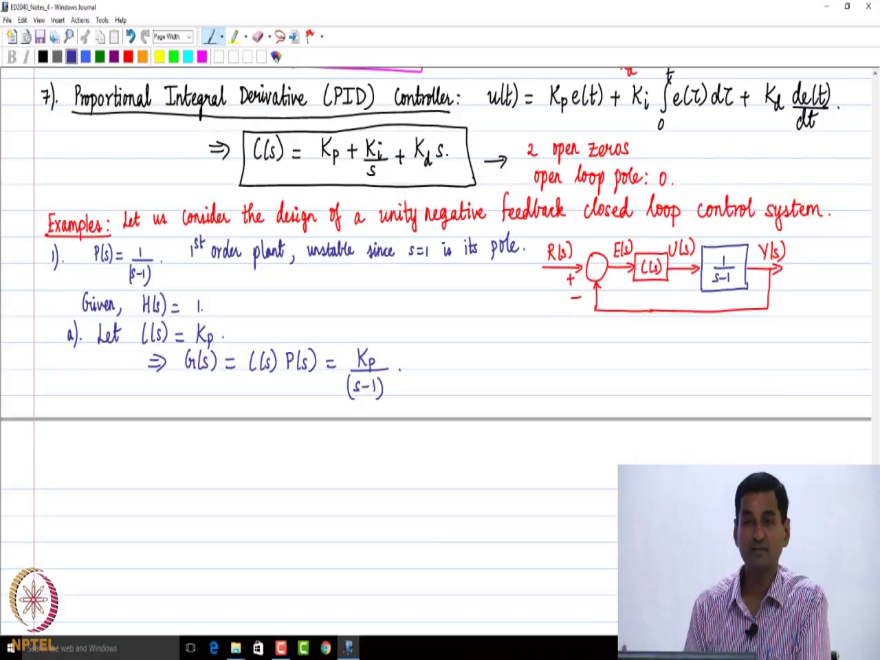 ED2040_Notes_4 - Windows Journal
File Edit View Insert Actions Tools Help
Page Width
B I
7). Proportional Integral Derivative (PID) Controller: u(t) = Kp e(t) + Ki ∫₀ᵗ e(τ)dτ + Kd de(t)/dt.
⇒ C(s) = Kp + Ki/s + Kd s. → 2 open zeros
open loop pole: 0.
Examples: Let us consider the design of a unity negative feedback closed loop control system.
1). P(s) = 1/(s-1) 1st order plant, unstable since s=1 is its pole.
R(s) E(s) U(s) Y(s)
+ C(s) 1/(s-1)
−
Given, H(s) = 1.
a). Let C(s) = Kp.
⇒ G(s) = C(s) P(s) = Kp/(s-1).
NPTEL
the web and Windows